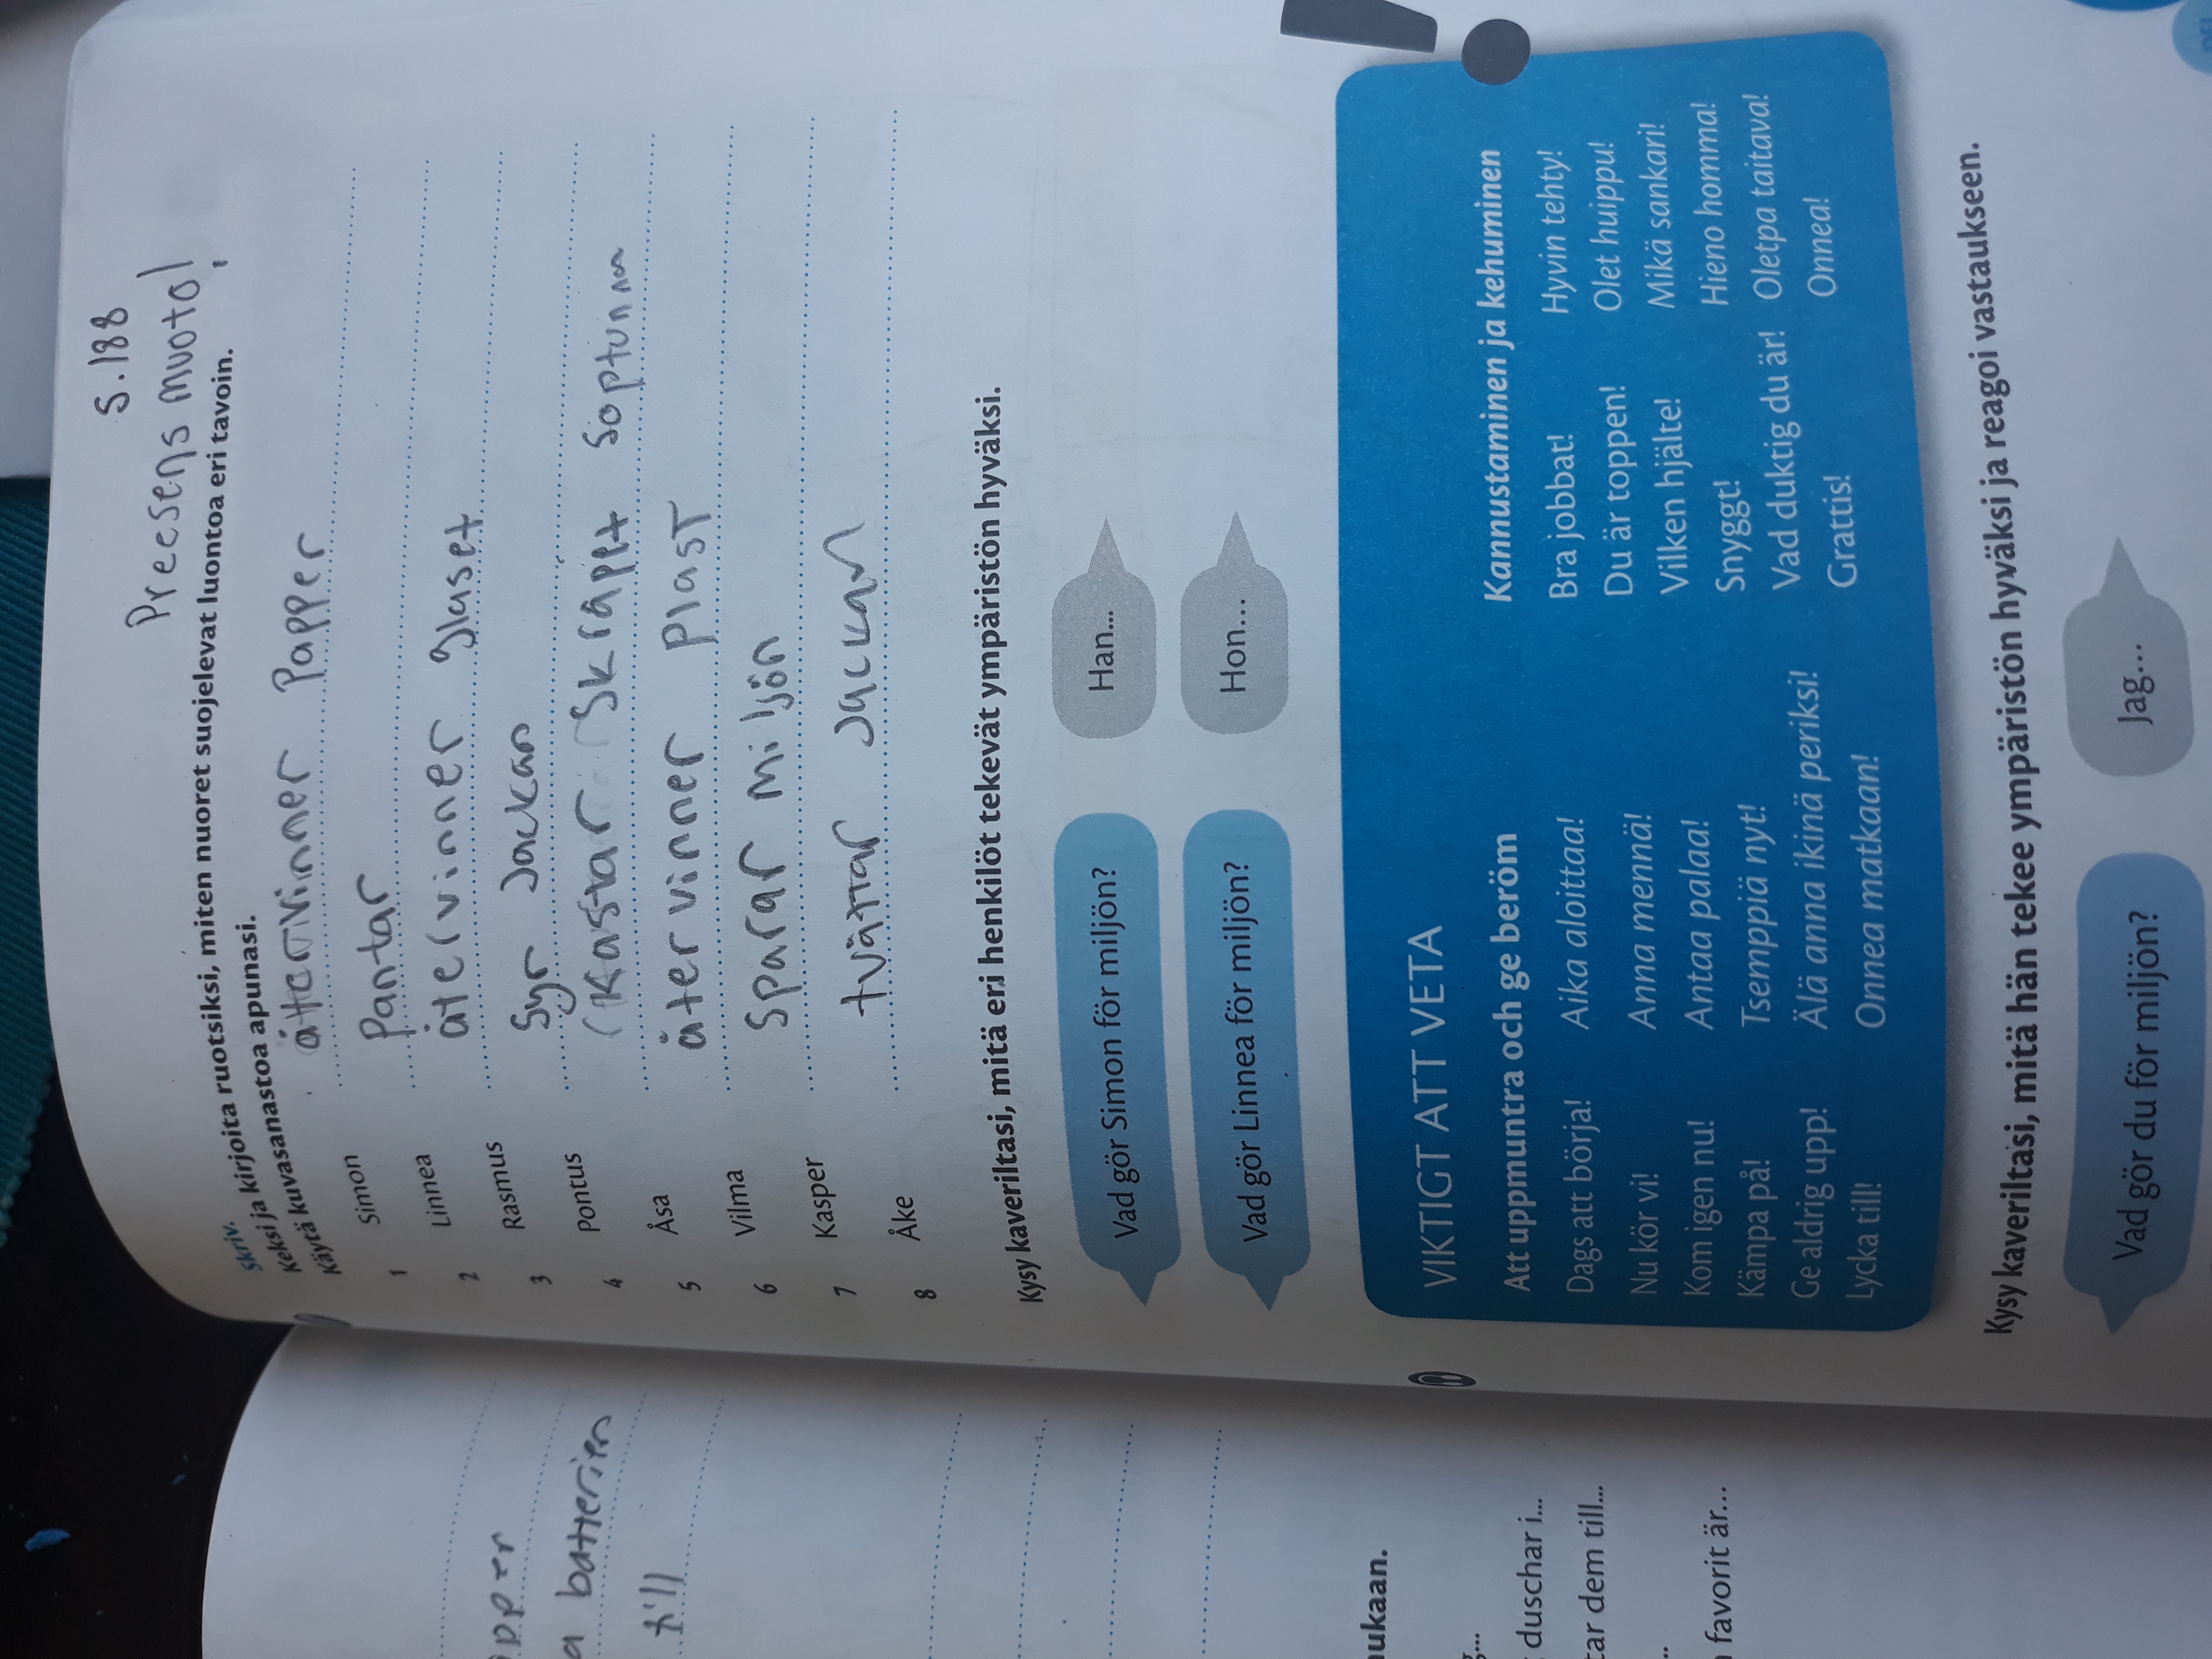 S.188
Preesens muoto!
Skriv.
Keksi ja kirjoita ruotsiksi, miten nuoret suojelevat luontoa eri tavoin.
Käytä kuvasanastoa apunasi.
1 Simon återvinner Papper
2 Linnea Pantar
3 Rasmus återvinner glaset
4 Pontus Syr Jackan
5 Åsa (Kastar Skräpet Soptunna
6 Vilma återvinner Plast
7 Kasper Sparar miljön
8 Åke tvättar Jackan
Kysy kaveriltasi, mitä eri henkilöt tekevät ympäristön hyväksi.
Vad gör Simon för miljön?
Han...
Vad gör Linnea för miljön?
Hon...
VIKTIGT ATT VETA
Att uppmuntra och ge beröm Kannustaminen ja kehuminen
Dags att börja! Aika aloittaa! Bra jobbat! Hyvin tehty!
Nu kör vi! Anna mennä! Du är toppen! Olet huippu!
Kom igen nu! Antaa palaa! Vilken hjälte! Mikä sankari!
Kämpa på! Tsemppiä nyt! Snyggt! Hieno homma!
Ge aldrig upp! Älä anna ikinä periksi! Vad duktig du är! Oletpa taitava!
Lycka till! Onnea matkaan! Grattis! Onnea!
Kysy kaveriltasi, mitä hän tekee ympäristön hyväksi ja reagoi vastaukseen.
Vad gör du för miljön?
Jag...
a batterier
till
ukaan.
duschar i...
tar dem till...
favorit är...